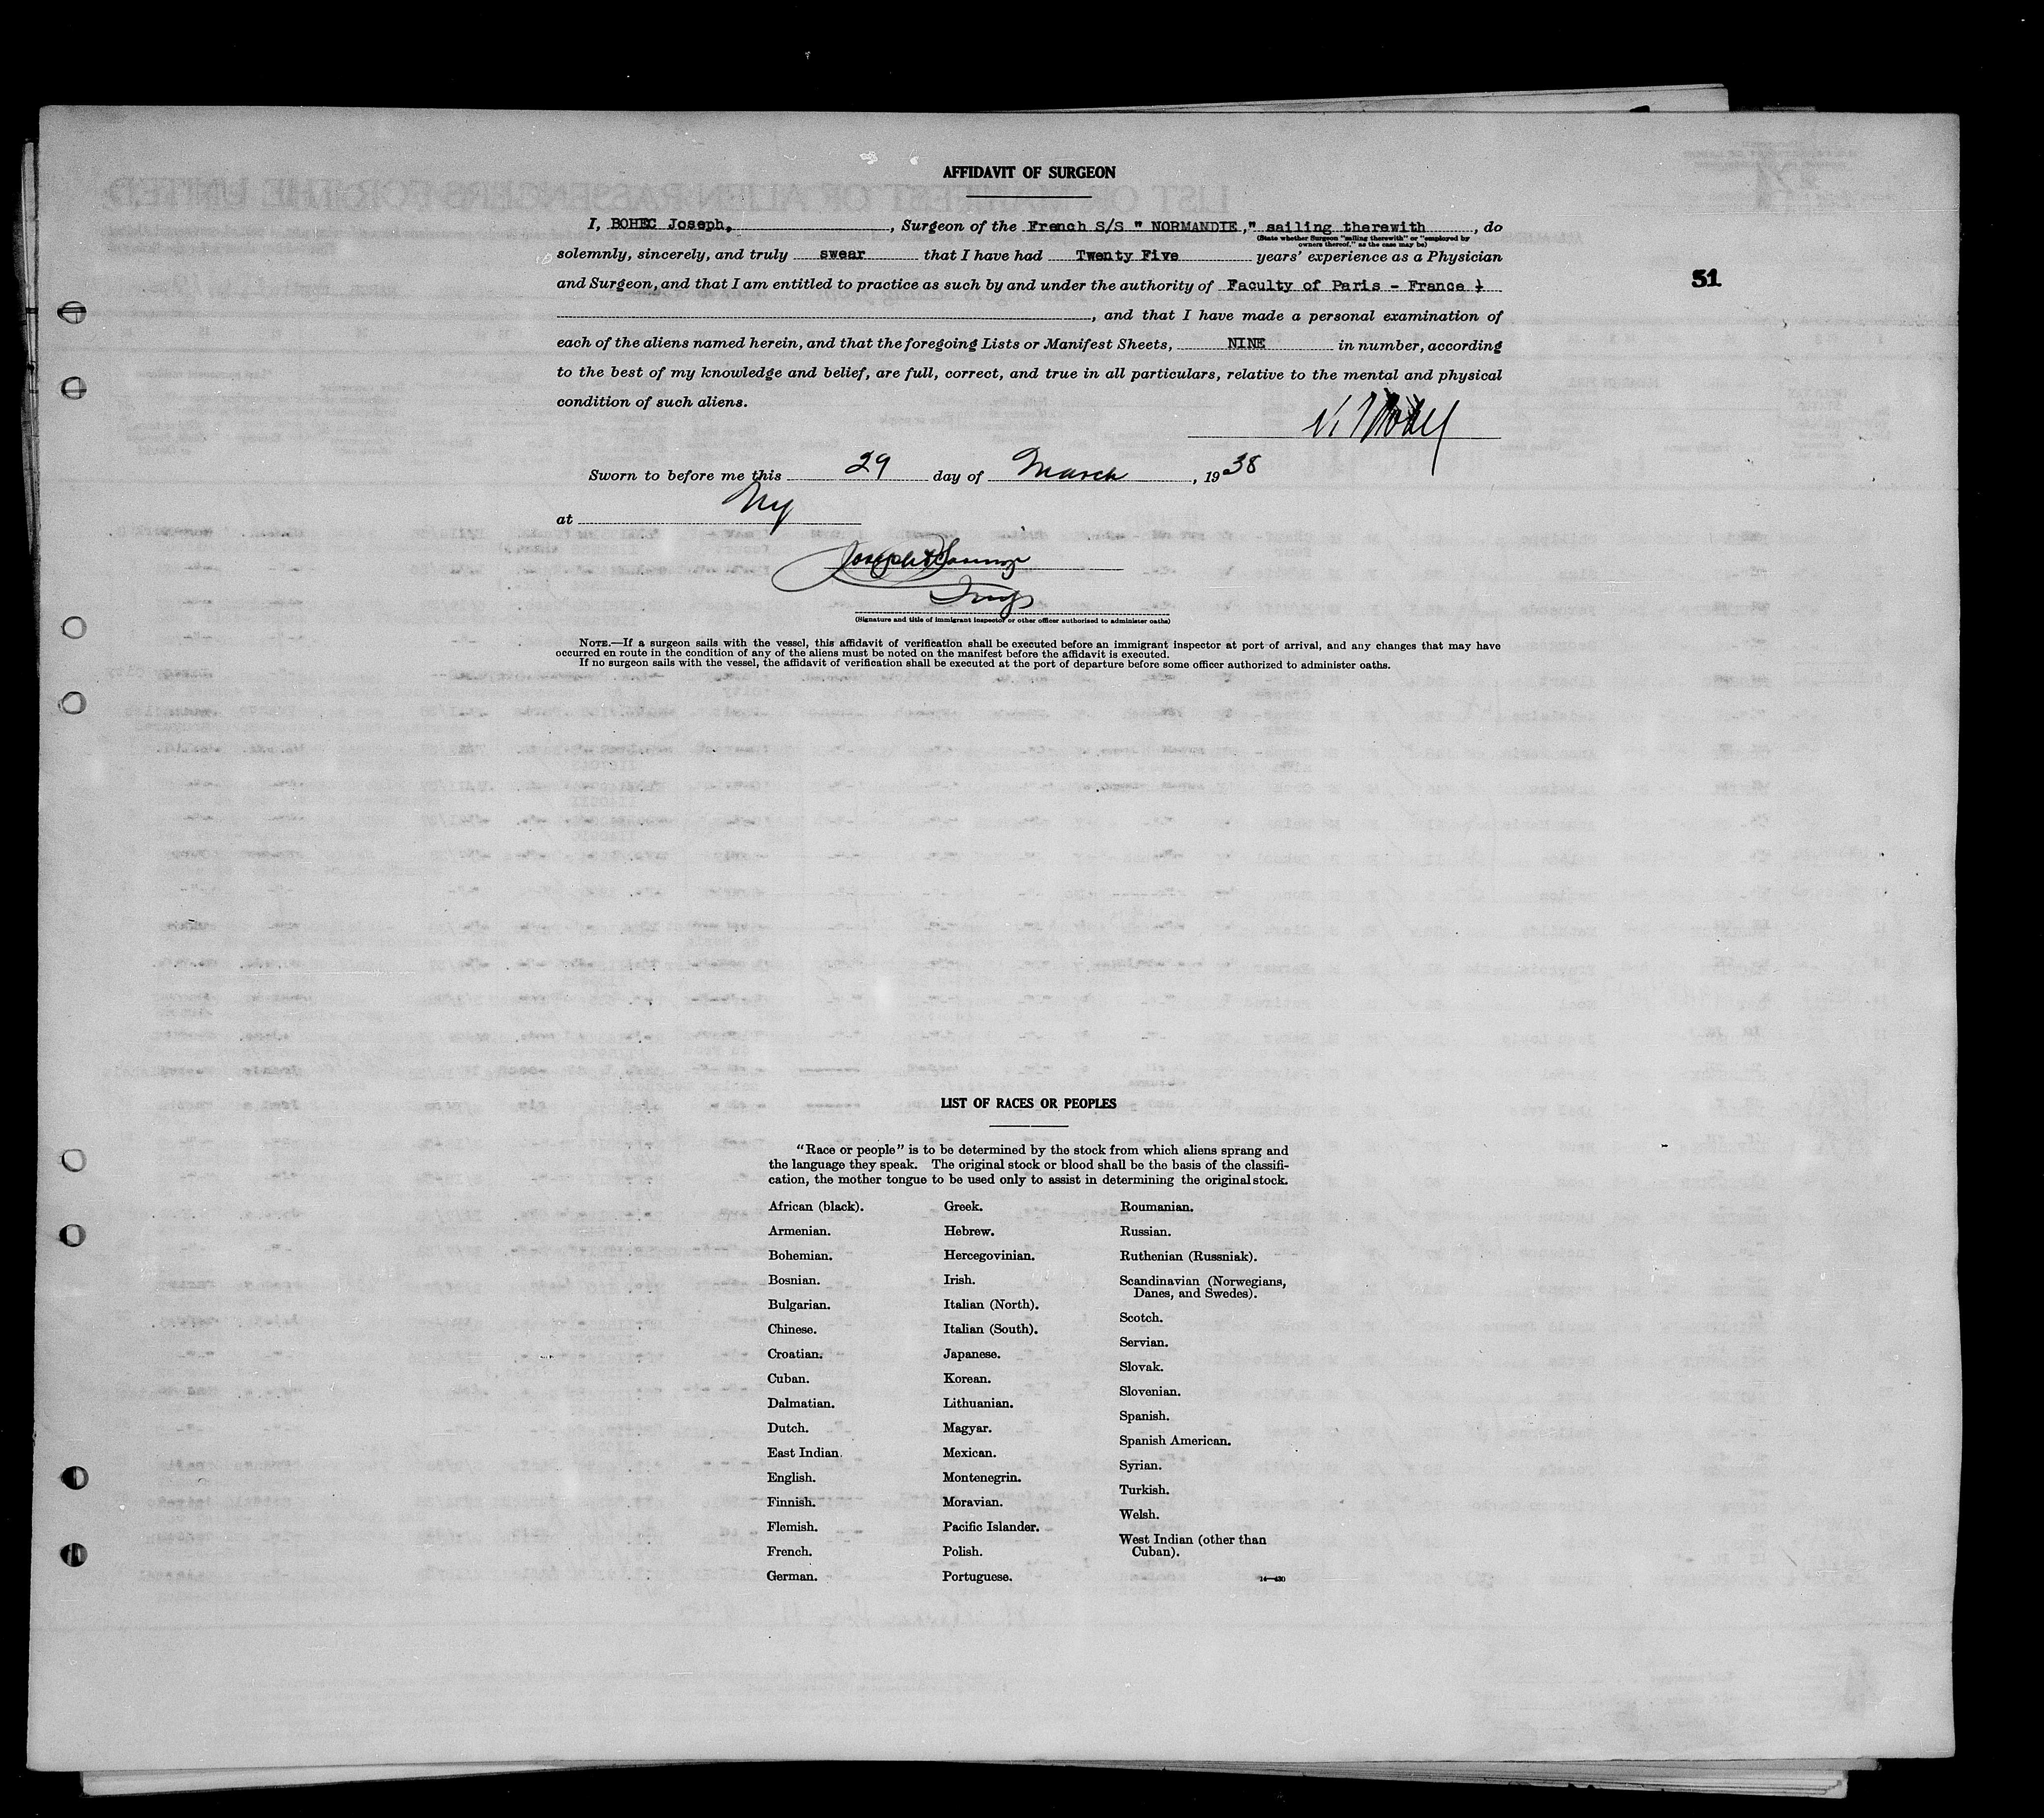 AFFIDAVIT OF SURGEON
I, BOHEC Joseph, , Surgeon of the French S/S " NORMANDIE ," sailing therewith , do
(State whether Surgeon "sailing therewith" or "employed by
owners thereof," as the case may be)
solemnly, sincerely, and truly swear that I have had Twenty Five years' experience as a Physician
51
and Surgeon, and that I am entitled to practice as such by and under the authority of Faculty of Paris - France
, and that I have made a personal examination of
each of the aliens named herein, and that the foregoing Lists or Manifest Sheets, NINE in number, according
to the best of my knowledge and belief, are full, correct, and true in all particulars, relative to the mental and physical
condition of such aliens.
Sworn to before me this 29 day of March , 1938
at NY
Joseph
(Signature and title of immigrant inspector or other officer authorized to administer oaths)
NOTE.—If a surgeon sails with the vessel, this affidavit of verification shall be executed before an immigrant inspector at port of arrival, and any changes that may have
occurred en route in the condition of any of the aliens must be noted on the manifest before the affidavit is executed.
If no surgeon sails with the vessel, the affidavit of verification shall be executed at the port of departure before some officer authorized to administer oaths.
LIST OF RACES OR PEOPLES
"Race or people" is to be determined by the stock from which aliens sprang and
the language they speak. The original stock or blood shall be the basis of the classifi-
cation, the mother tongue to be used only to assist in determining the original stock.
African (black).
Armenian.
Bohemian.
Bosnian.
Bulgarian.
Chinese.
Croatian.
Cuban.
Dalmatian.
Dutch.
East Indian.
English.
Finnish.
Flemish.
French.
German.
Greek.
Hebrew.
Hercegovinian.
Irish.
Italian (North).
Italian (South).
Japanese.
Korean.
Lithuanian.
Magyar.
Mexican.
Montenegrin.
Moravian.
Pacific Islander.
Polish.
Portuguese.
Roumanian.
Russian.
Ruthenian (Russniak).
Scandinavian (Norwegians,
Danes, and Swedes).
Scotch.
Servian.
Slovak.
Slovenian.
Spanish.
Spanish American.
Syrian.
Turkish.
Welsh.
West Indian (other than
Cuban).
14—430